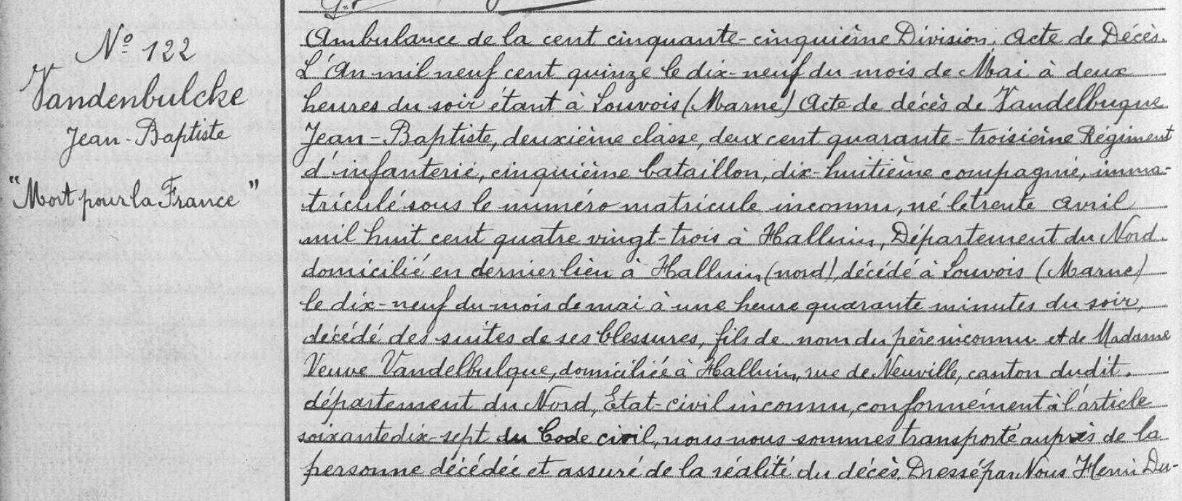 Nº 122
Vandenbulcke
Jean-Baptiste
"Mort pour la France"
Ambulance de la cent cinquante-cinquième Division. Acte de Décès.
L'An mil neuf cent quinze le dix-neuf du mois de Mai à deux
heures du soir étant à Louvois (Marne) Acte de décès de Vandelbugue
Jean-Baptiste, deuxième classe, deux cent quarante-troisième Régiment
d'infanterie, cinquième bataillon, dix-huitième compagnie, imma-
triculé sous le numéro matricule inconnu, né le trente Avril
mil huit cent quatre vingt-trois à Halluin, Département du Nord.
domicilié en dernier lieu à Halluin (nord) décédé à Louvois (Marne)
le dix-neuf du mois de mai à une heure quarante minutes du soir,
décédé des suites de ses blessures, fils de nom du père inconnu et de Madame
Veuve Vandelbulque, domiciliée à Halluin, rue de Neuville, canton dudit.
département du Nord, Etat-civil inconnu, conformément à l'article
soixante dix-sept du Code civil, nous nous sommes transporté auprès de la
personne décédée et assuré de la réalité du décès. Dressé par Nous Henri Du-